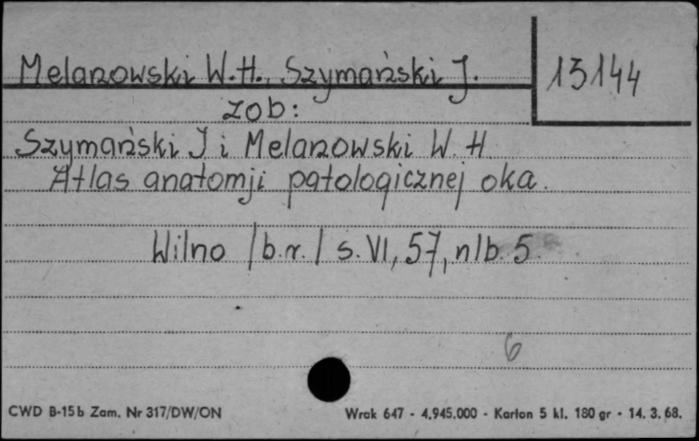 Melanowski W.H., Szymański J.
13144
zob:
Szymański J i Melanowski W. H
Atlas anatomji patologicznej oka.
Wilno /b.r./ s. VI, 57, nlb. 5.
6
CWD B-15b Zam. Nr 317/DW/ON
Wrak 647 - 4.945.000 - Karton 5 kl. 180 gr - 14. 3. 68.